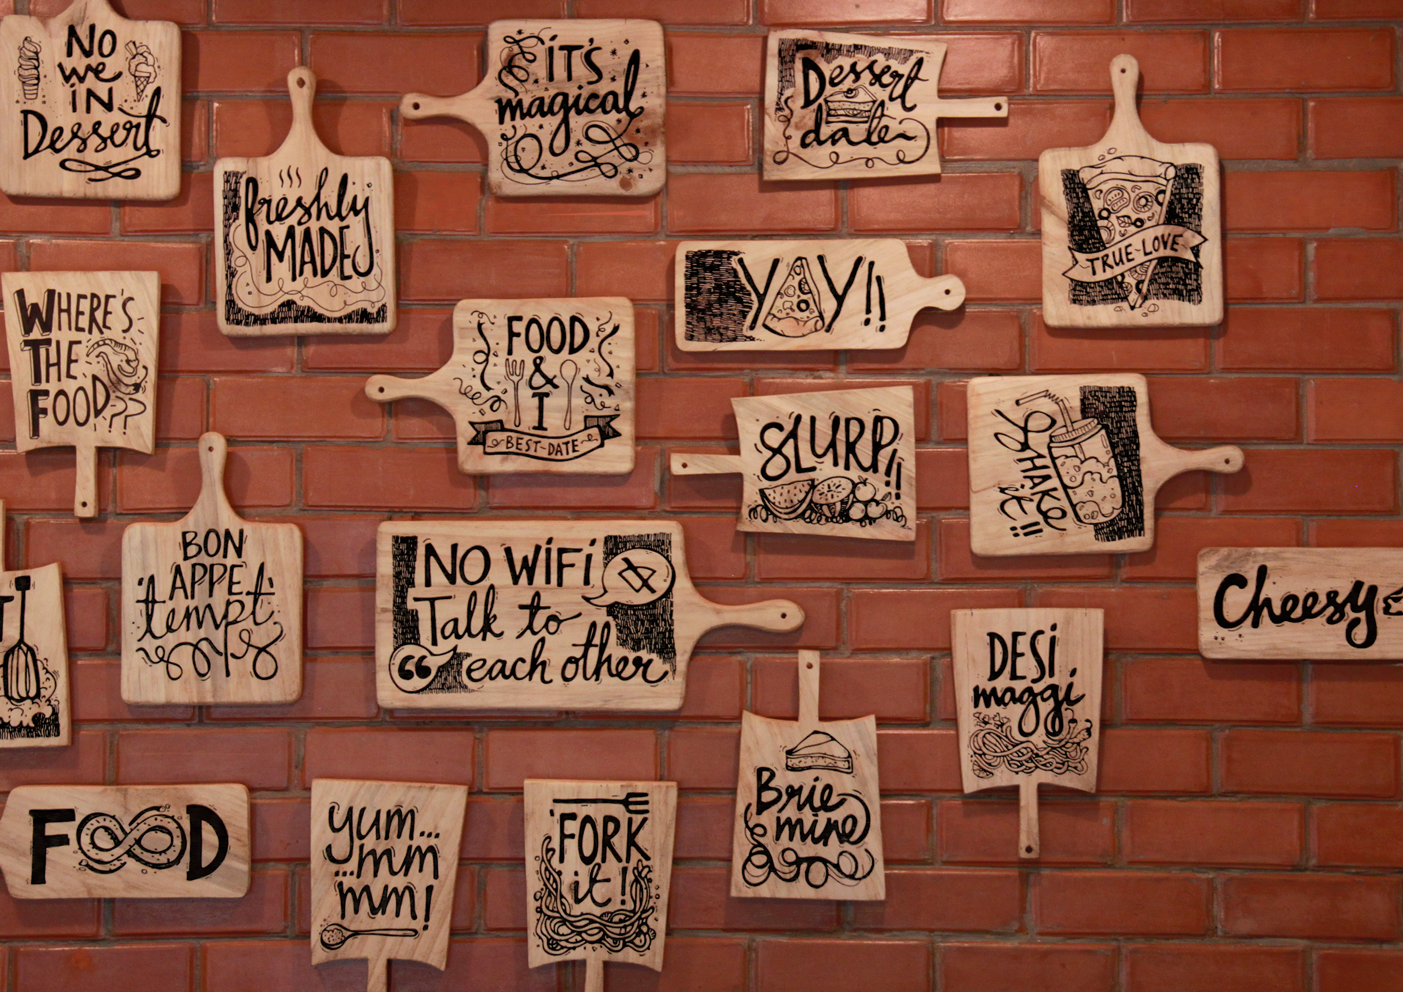 No
we
iN
Dessert
freshly
MADE
iT'S
magical
Dessert
date
TRUE-LOVE
WHERE'S
THE
FOOD??
FOOD
&
I
BEST-DATE
YAY!!
SLURP!!
SHAKE
it!!
BON
APPE
tempt
NO WiFi
Talk to
each other
T
Cheesy
DESi
maggi
Brie
mine
FOOD
yum...
...mm
mm!
FORK
it!